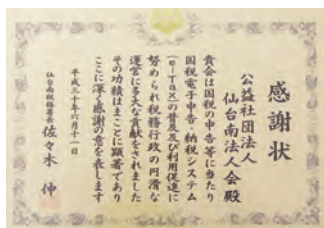 感謝状
公益社団法人
仙台南法人会殿
貴会は国税の申告等に当たり
国税電子申告・納税システム
(e-Tax)の普及及び利用促進に
努められ税務行政の円滑な
運営に多大な貢献をされました
その功績はまことに顕著であり
ここに深く感謝の意を表します
平成三十年六月十一日
仙台南税務署長 佐々木 伸